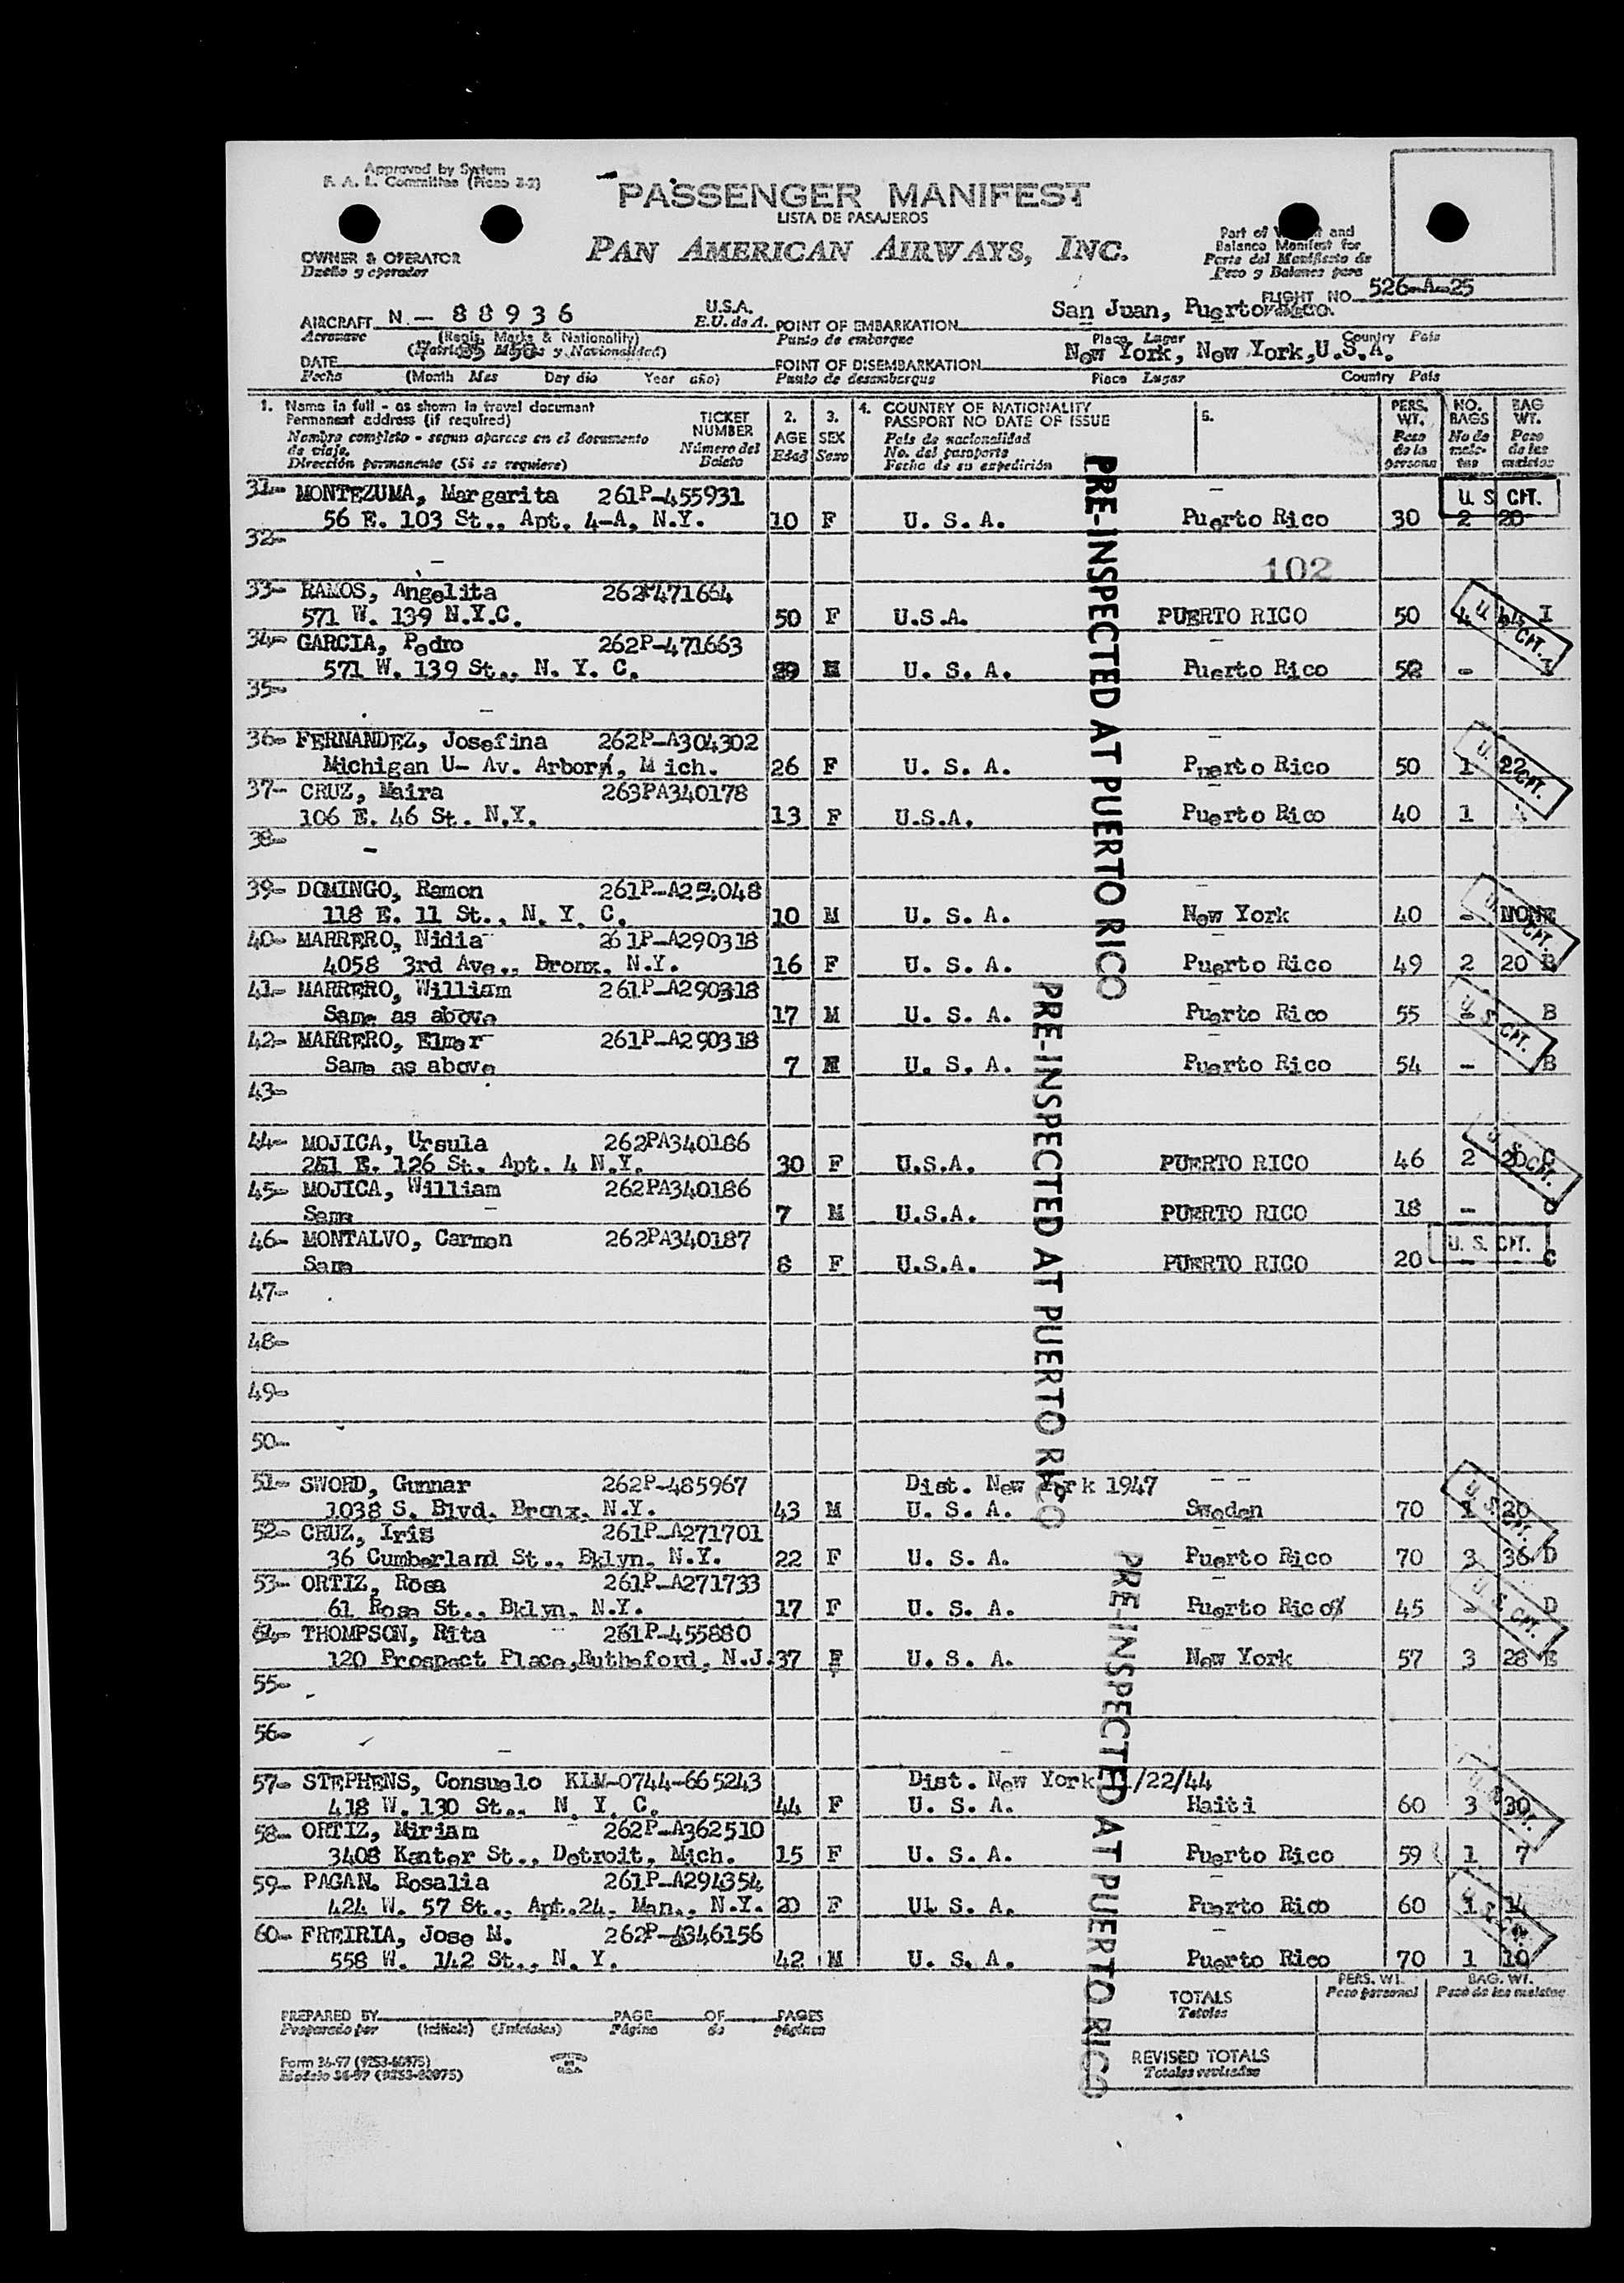 Approved by System
F. A. L. Committee (Picao 3-2)
PASSENGER MANIFEST
LISTA DE PASAJEROS
PAN AMERICAN AIRWAYS, INC.
OWNER & OPERATOR
Dueño y operador
Part of and
Balance Manifest for
Parte del Manifiesto de
Peso y Balance para
FLIGHT NO. 526-A-25
AIRCRAFT N - 88936 U.S.A.
Aeronave (Regis. Marks & Nationality) E.U. de A.
(Matricula Marcas y Nacionalidad)
POINT OF EMBARKATION San Juan, Puerto Rico.
Punto de embarque Place Lugar Country Pais
DATE
Fecha (Month Mes Day dia Year año)
POINT OF DISEMBARKATION New York, New York, U.S.A.
Punto de desembarque Place Lugar Country Pais
1. Name in full - as shown in travel document
Permanent address (if required)
Nombre completo - segun aparece en el documento
de viaje.
Dirección permanente (Si se requiere)
TICKET
NUMBER
Número del
Boleto
2.
AGE
Edad
3.
SEX
Sexo
4. COUNTRY OF NATIONALITY
PASSPORT NO DATE OF ISSUE
Pais de nacionalidad
No. del pasaporte
Fecha de su expedición
5.
PERS.
WT.
Peso
de la
persona
NO.
BAGS
No de
male-
tas
BAG
WT.
Peso
de las
maletas
31- MONTEZUMA, Margarita 261P-455931 - U. S. CIT.
56 E. 103 St., Apt. 4-A, N.Y. 10 F U. S. A. Puerto Rico 30 2 20
32-
102
33- RAMOS, Angelita 262P471664
571 W. 139 N.Y.C. 50 F U.S.A. PUERTO RICO 50 4 I
U. S. CIT.
34- GARCIA, Pedro 262P-471663 -
571 W. 139 St., N. Y. C. M U. S. A. Puerto Rico - I
35-
36- FERNANDEZ, Josefina 262P-A304302 -
Michigan U- Av. Arbor, Mich. 26 F U. S. A. Puerto Rico 50 1 22
U. S. CIT.
37- CRUZ, Maira 263PA340178 -
106 E. 46 St. N.Y. 13 F U.S.A. Puerto Rico 40 1
38-
39- DOMINGO, Ramon
118 E. 11 St., N. Y. C. 10 M U. S. A. New York 40 - NONE
U. S. CIT.
40- MARRERO, Nidia 261P-A290318 -
4058 3rd Ave., Bronx, N.Y. 16 F U. S. A. Puerto Rico 49 2 20 B
41- MARRERO, William 261P-A290318 -
Same as above 17 M U. S. A. Puerto Rico 55 - B
U. S. CIT.
42- MARRERO, Elmer 261P-A290318 -
Same as above 7 M U. S. A. Puerto Rico 54 - B
43-
44- MOJICA, Ursula 262PA340186
E. 126 St. Apt. 4 N.Y. 30 F U.S.A. PUERTO RICO 46 2 20 C
U. S. CIT.
45- MOJICA, William 262PA340186
Same 7 M U.S.A. PUERTO RICO 18 - C
46- MONTALVO, Carmen 262PA340187 U. S. CIT.
Same 8 F U.S.A. PUERTO RICO 20 - C
47-
48-
49-
50-
51- SWORD, Gunnar 262P-485967 Dist. New York 1947 - -
1038 S. Blvd. Bronx, N.Y. 43 M U. S. A. Sweden 70 1 20
U. S. CIT.
52- CRUZ, Iris 261P-A271701 -
36 Cumberland St., Bklyn, N.Y. 22 F U. S. A. Puerto Rico 70 3 36 D
53- ORTIZ, Rosa 261P-A271733 -
61 Rose St., Bklyn, N.Y. 17 F U. S. A. Puerto Rico 45 - D
U. S. CIT.
54- THOMPSON, Rita 261P-455880 -
120 Prospect Place, Rutheford, N.J. 37 F U. S. A. New York 57 3 28 E
55-
56-
57- STEPHENS, Consuelo KLM-0744-665243 Dist. New York /22/44
418 W. 130 St., N. Y. C. 44 F U. S. A. Haiti 60 3 30
U. S. CIT.
58- ORTIZ, Miriam 262P-A362510 -
3408 Kanter St., Detroit, Mich. 15 F U. S. A. Puerto Rico 59 1 7
59- PAGAN. Rosalia 261P-A294354 -
424 W. 57 St., Apt.24, Man., N.Y. 20 F U. S. A. Puerto Rico 60 1 14
U. S. CIT.
60- FREIRIA, Jose M. 262P-A346156 -
558 W. 142 St., N. Y. 42 M U. S. A. Puerto Rico 70 1 10
PRE-INSPECTED AT PUERTO RICO
PRE-INSPECTED AT PUERTO RICO
PRE-INSPECTED AT PUERTO RICO
TOTALS
Totales
PERS. WT.
Peso personal
BAG. WT.
Peso de las maletas
PREPARED BY PAGE OF PAGES
Preparado por (Initials) (Iniciales) Página de páginas
REVISED TOTALS
Totales revisados
Form 36-97 (9253-60975)
Modelo 36-97 (9253-60975)